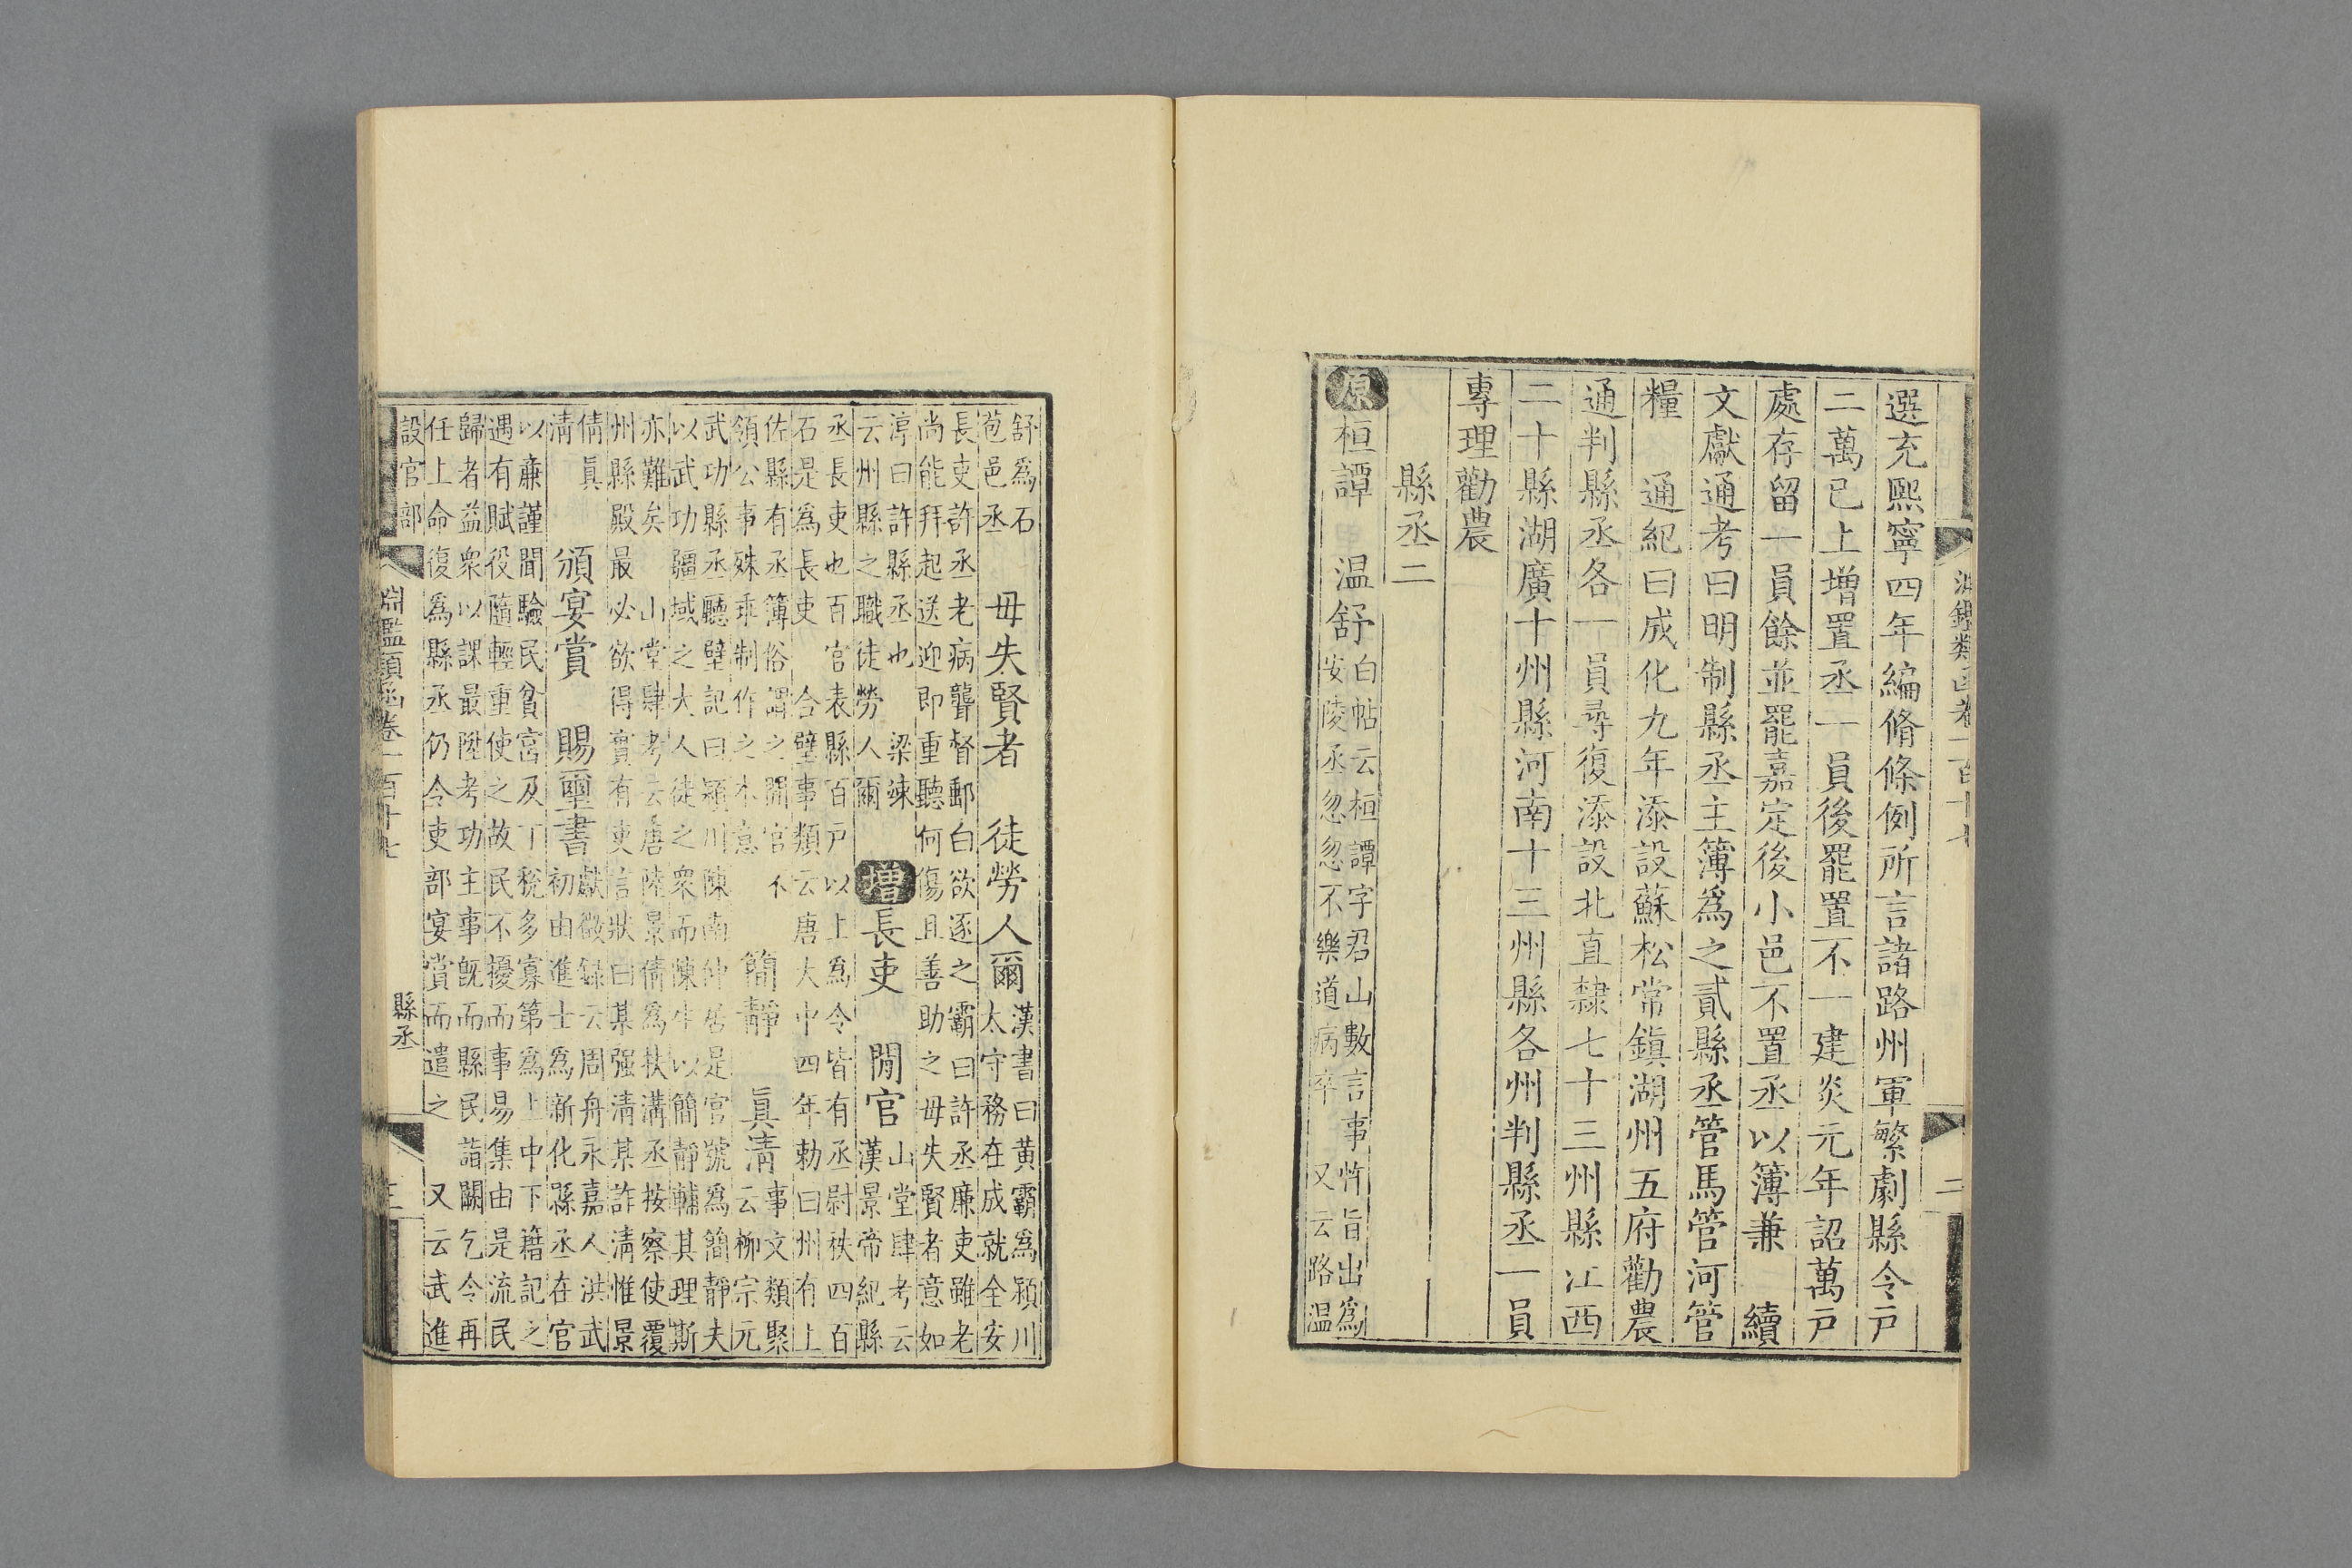 選充熙寧四年編脩條例所言諸路州軍繁劇縣令戸
二萬已上增置丞一員後罷置不一建炎元年詔萬戸
處存留一員餘並罷嘉定後小邑不置丞以簿兼 續
文獻通考曰明制縣丞主簿爲之貳縣丞管馬管河管
糧 通紀曰成化九年添設蘇松常鎮湖州五府勸農
通判縣丞各一員尋復添設北直隸七十三州縣江西
二十縣湖廣十州縣河南十三州縣各州判縣丞一員
專理勸農
縣丞二
原桓譚 温舒
白帖云桓譚字君山數言事忤旨出爲
安陵丞忽忽不樂道病卒 又云路温
淵鑑類函卷二百十七
二
舒爲石
苞邑丞
毋失賢者 徒勞人爾
漢書曰黄霸爲潁川
太守務在成就全安
長吏許丞老病聾督郵白欲逐之霸曰許丞廉吏雖老
尚能拜起送迎即重聽何傷且善助之毋失賢者意如
淳曰許縣丞也 梁竦
云州縣之職徒勞人爾
增長吏 閒官
山堂肆考云
漢景帝紀縣
丞長吏也百官表縣百戸以上爲令皆有丞尉秩四百
石是爲長吏 合璧事類云唐大中四年勅曰州有上
佐縣有丞簿俗謂之閒官不
領公事殊乖制作之本意
簡靜 眞淸
事文類聚
云柳宗元
武功縣丞廳壁記曰潁川陳南仲居是官號爲簡靜夫
以武功疆域之大人徒之衆而陳生以簡靜輔其理斯
亦難矣 山堂肆考云唐陸景倩爲扶溝丞按察使覆
州縣殿最必欲得實有吏言狀曰某强淸某詐淸惟景
倩眞
淸
頒宴賞 賜璽書
獻徵録云周舟永嘉人洪武
初由進士爲新化縣丞在官
以亷謹聞驗民貧富及丁稅多寡第爲上中下籍記之
遇有賦役隨輕重使之故民不擾而事易集由是流民
歸者益衆以課最陞考功主事旣而縣民詣闕乞令再
任上命復爲縣丞仍令吏部宴賞而遣之 又云武進
設官部
淵鑑類函卷二百十七
縣丞
三